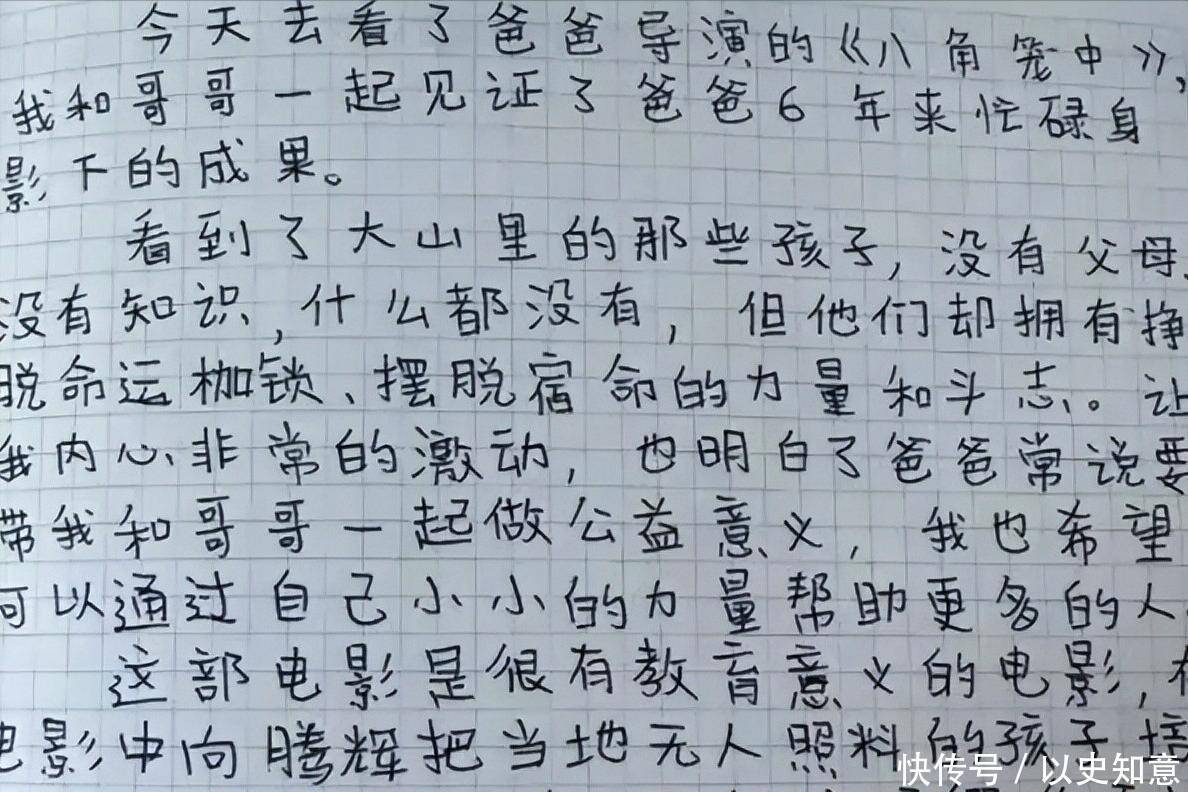 今天去看了爸爸导演的《八角笼中》，
我和哥哥一起见证了爸爸6年来忙碌身
影下的成果。
看到了大山里的那些孩子，没有父母，
没有知识，什么都没有，但他们却拥有挣
脱命运枷锁、摆脱宿命的力量和斗志。让
我内心非常的激动，也明白了爸爸常说要
带我和哥哥一起做公益意义，我也希望
可以通过自己小小的力量帮助更多的人
这部电影是很有教育意义的电影，
电影中向腾辉把当地无人照料的孩子
快传号/以史知意